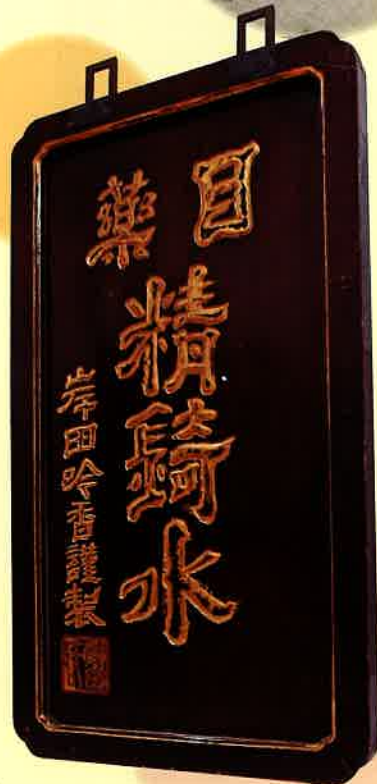 目藥
精錡水
岸田吟香謹製